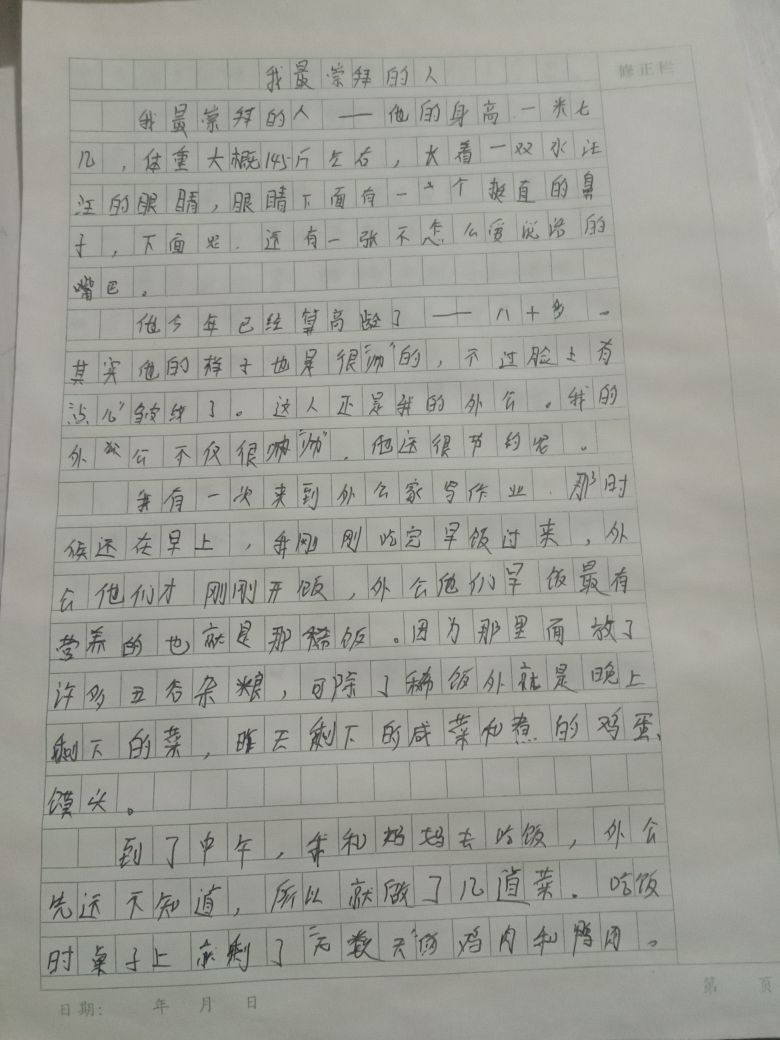 我最崇拜的人
修正栏
我最崇拜的人——他的身高一米七
几，体重大概145斤左右，长着一双水汪
汪的眼睛，眼睛下面有一个挺直的鼻
子，下面呢.还有一张不怎么爱说话的
嘴巴。
他今年已经算高龄了——八十多。
其实他的样子也是很"帅"的，不过脸上有
"点儿"皱纹了。这人还是我的外公。我的
外公不仅很"帅".他还很节约呢。
我有一次来到外公家写作业.那时
候还在早上，我刚刚吃完早饭过来，外
公他们才刚刚开饭，外公他们早饭最有
营养的也就是那稀饭。因为那里面放了
许多五谷杂粮，可除了稀饭外就是晚上
剩下的菜，昨天剩下的咸菜和煮的鸡蛋、
馍头。
到了中午，我和妈妈去吃饭，外公
先还不知道，所以就做了几道菜.吃饭
时桌子上就剩了"无数天"的鸡肉和鸭肉。
第 页
日期: 年 月 日